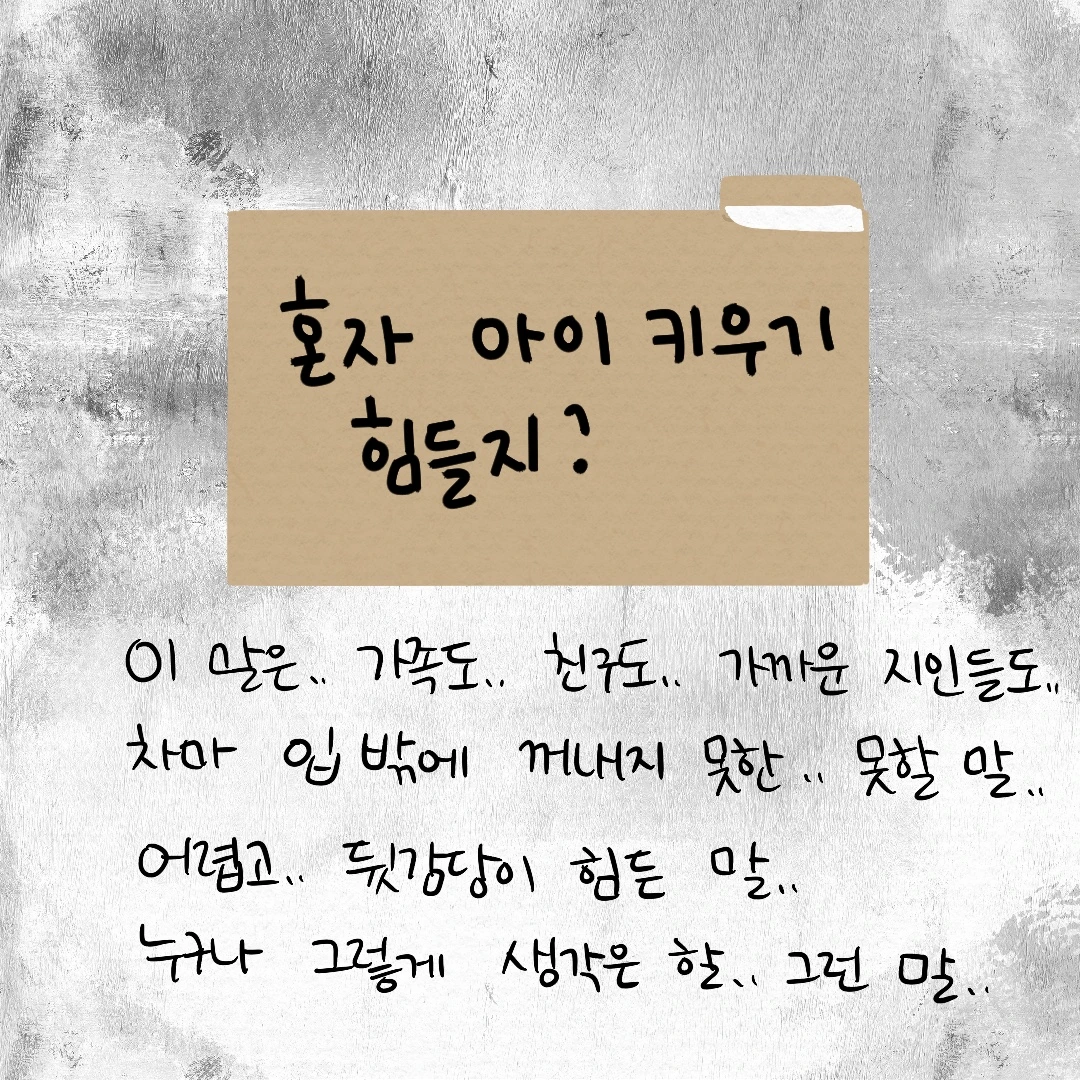 혼자 아이 키우기
힘들지?
이 말은.. 가족도.. 친구도.. 가까운 지인들도..
차마 입 밖에 꺼내지 못한.. 못할 말..
어렵고.. 뒷감당이 힘든 말..
누구나 그렇게 생각은 할.. 그런 말..